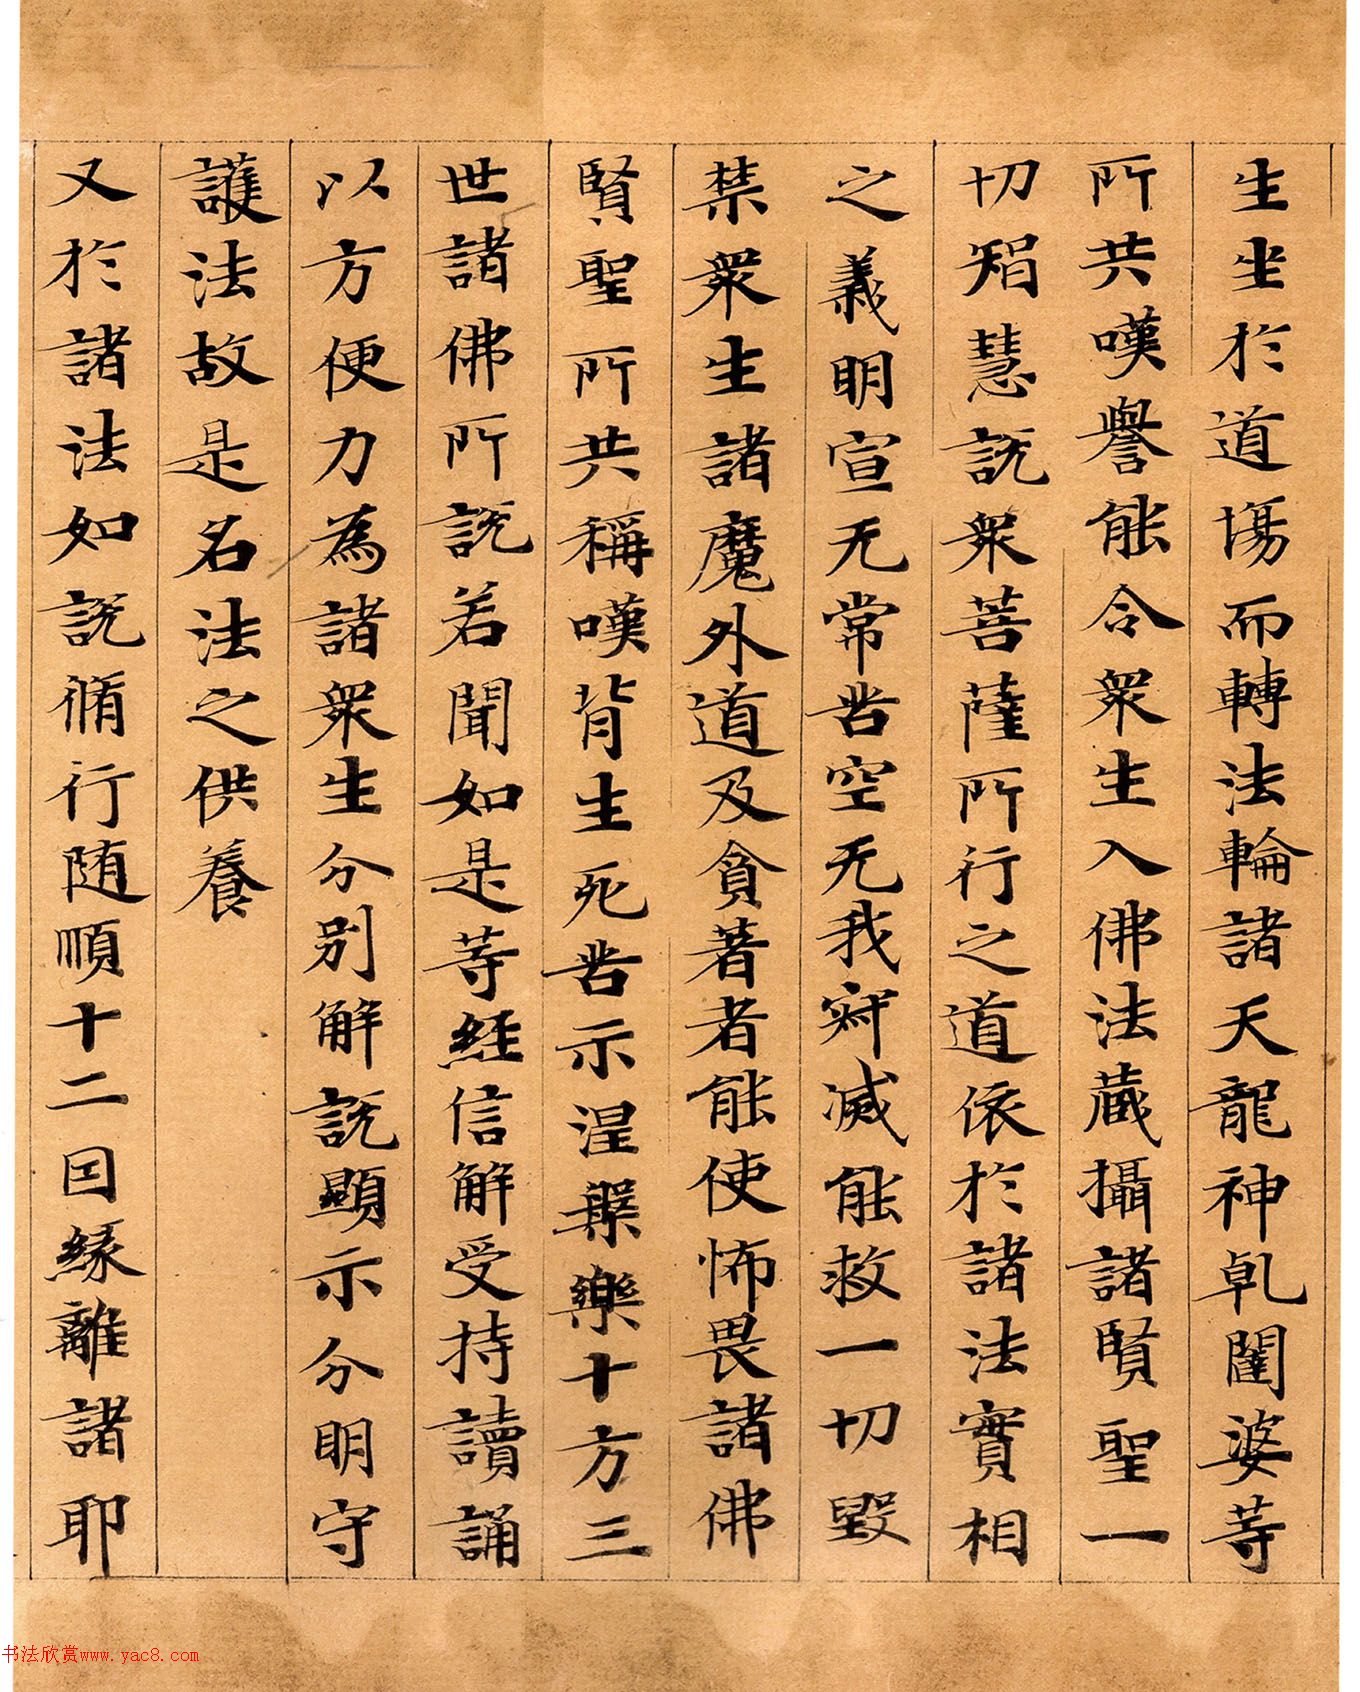 生坐於道場而轉法輪諸天龍神乹闥婆等
所共嘆譽能令衆生入佛法藏攝諸賢聖一
切智慧說衆菩薩所行之道依於諸法實相
之義明宣无常苦空无我寂滅能救一切毀
禁衆生諸魔外道及貪著者能使怖畏諸佛
賢聖所共稱嘆背生死苦示涅槃樂十方三
世諸佛所說若聞如是等經信解受持讀誦
以方便力為諸衆生分別解說顯示分明守
護法故是名法之供養
又於諸法如說脩行随順十二因緣離諸耶
书法欣赏www.yac8.com